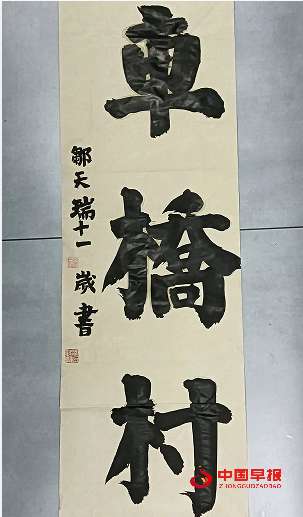 車橋村
鄒天瑞十一歲書
中国早报
ZHONGGUOZAOBAO